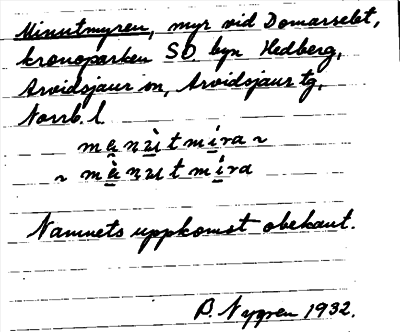 Minutmyren, myr vid Domarselet,
kronoparken SO byn Hedberg,
Arvidsjaur sn, Arvidsjaur tg,
Norrb. l.
Namnets uppkomst obekant.
B. Nygren 1932.